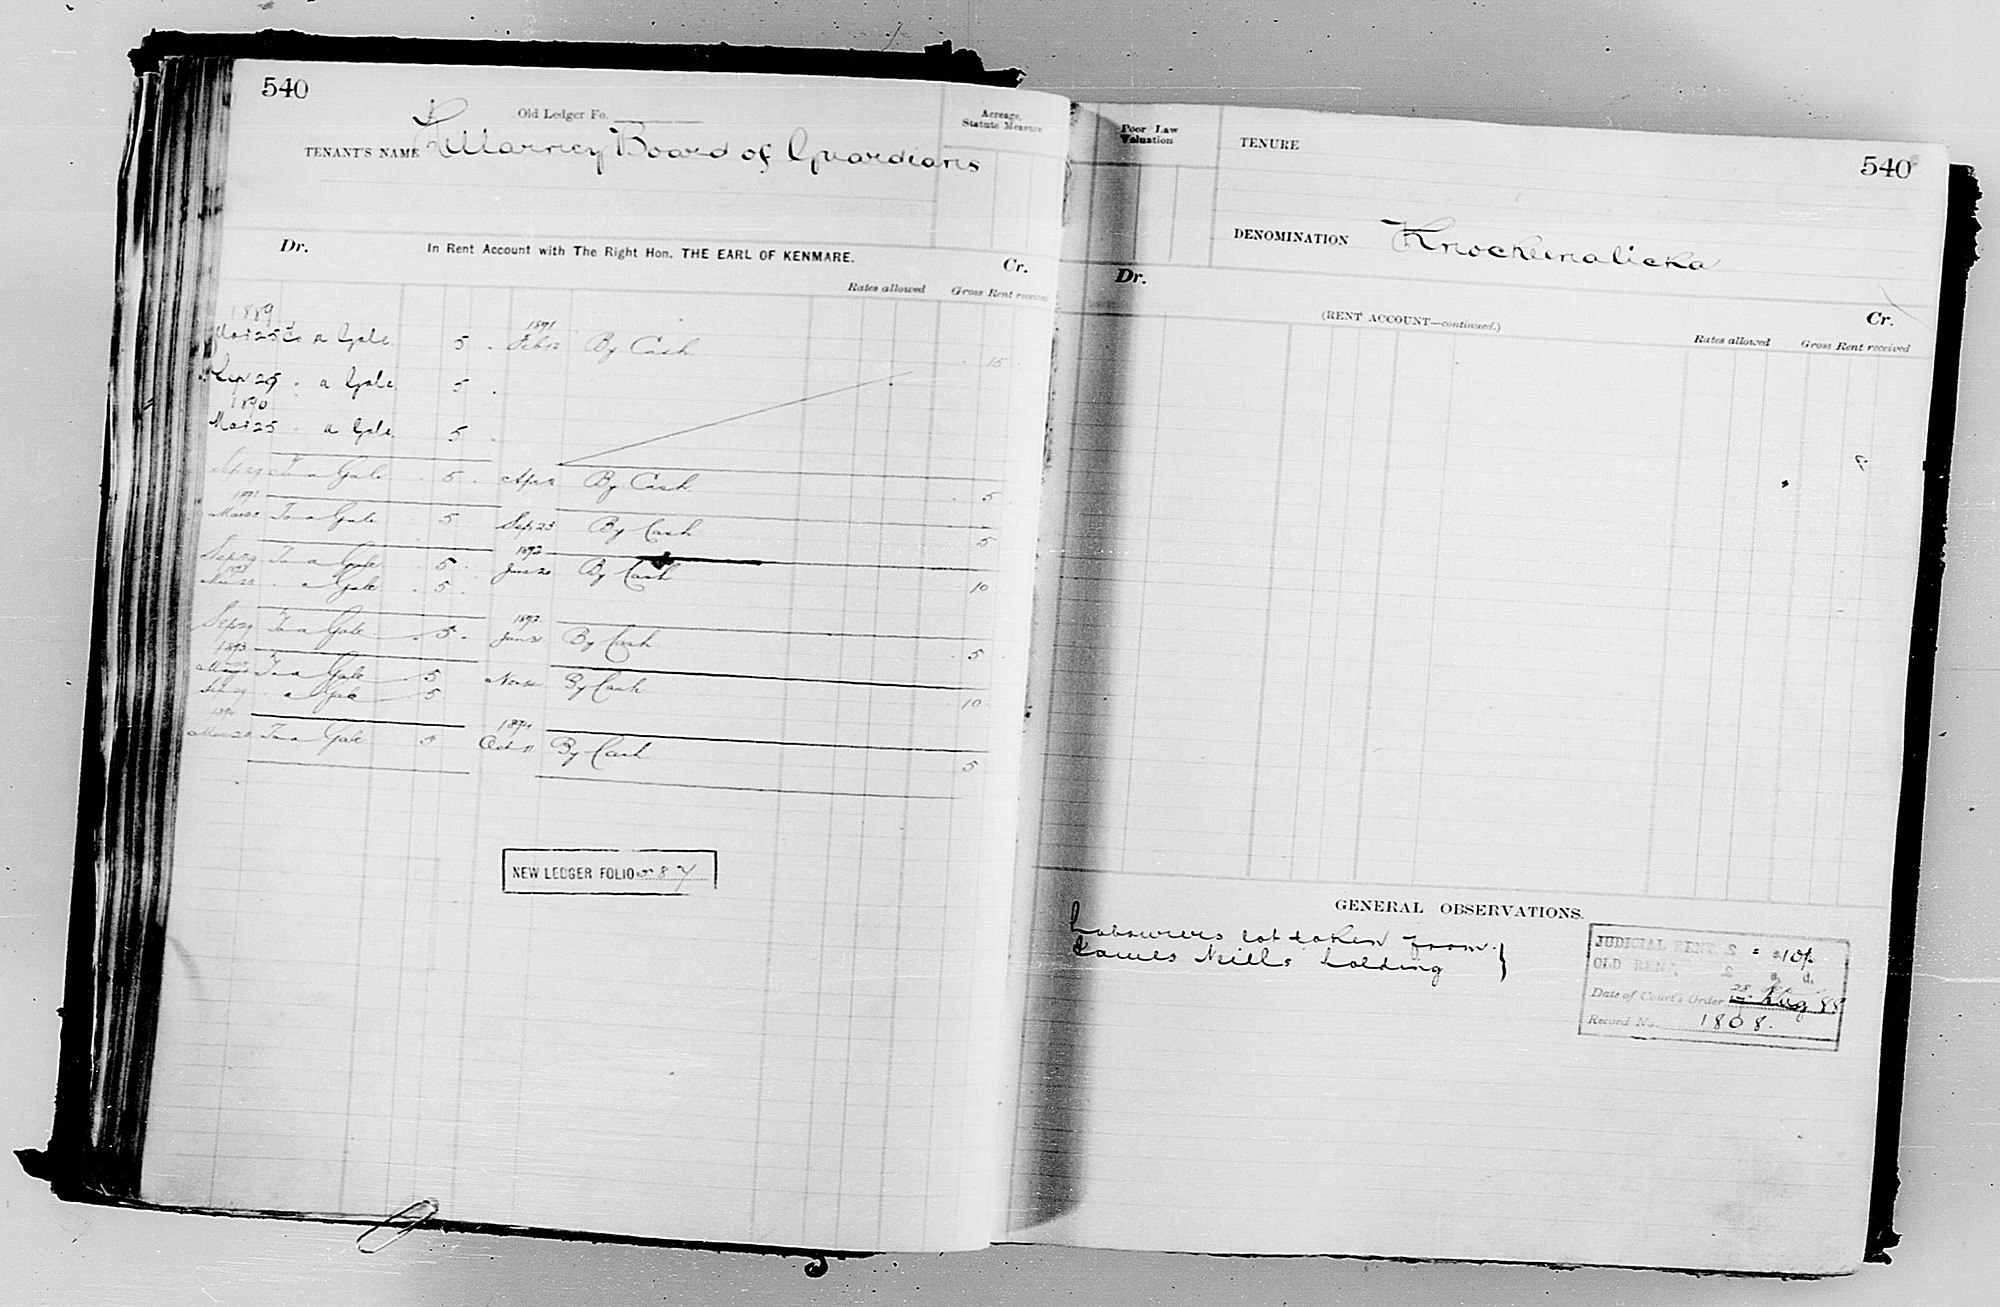 540
Old Ledger Fo.
TENANT'S NAME Killarney Board of Guardians
Acreage, Statute Measure
Dr. In Rent Account with The Right Hon. THE EARL OF KENMARE. Cr.
Rates allowed Gross Rent received
1889 1891
Mar 25 To a Gale 5 Feb 12 By Cash 15
Sep 29 a Gale 5
1890
Mar 25 a Gale 5
Sep 29 To a Gale 5 Apr By Cash 5
1891
Mar 25 To a Gale 5 Sep 23 By Cash 5
1892
Sep 29 To a Gale 5 June 20 By Cash 10
1892
Mar 25 a Gale 5
1892
Sep 29 To a Gale 5 Jan 31 By Cash 5
1893
Mar 25 To a Gale 5 Nov By Cash
Sep 29 a Gale 5 10
1894 1894
Mar 25 To a Gale 5 Oct 11 By Cash 5
NEW LEDGER FOLIO 87
Poor Law Valuation
TENURE
540
DENOMINATION Knockenalicka
Dr. Cr.
(RENT ACCOUNT—continued.)
Rates allowed Gross Rent received
GENERAL OBSERVATIONS.
Labourers lot taken from
James Neills holding
JUDICIAL RENT £ = 10/-
OLD RENT, £ s. d.
Date of Court's Order 28 Aug 88
Record No. 1808.